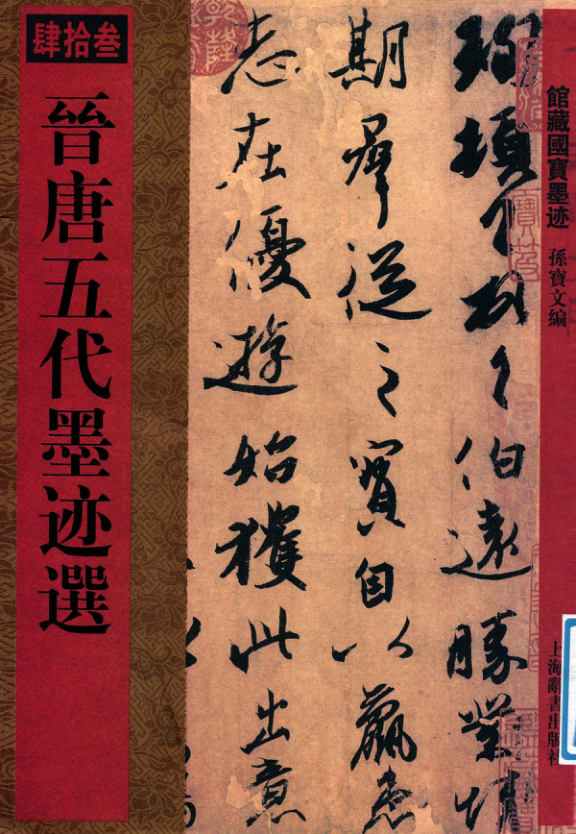 肆拾叁
晉唐五代墨迹選
館藏國寶墨迹
孫寶文编
上海辭書出版社
珣頓首頓首伯遠勝業情
期羣從之寶自以羸患
志在優遊始獲此出意